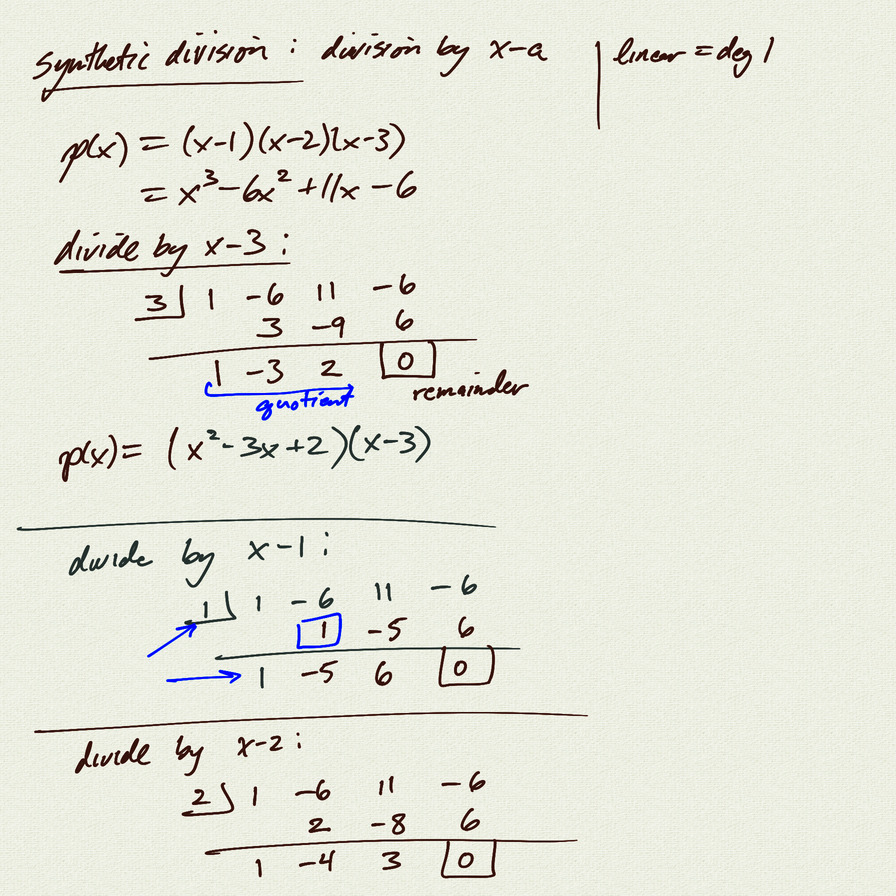 synthetic division : division by x-a
linear = deg 1
p(x) = (x-1)(x-2)(x-3)
= x³-6x²+11x-6
divide by x-3 :
3 | 1 -6 11 -6
3 -9 6
1 -3 2 0
quotient remainder
p(x) = (x²-3x+2)(x-3)
divide by x-1 :
1 | 1 -6 11 -6
1 -5 6
1 -5 6 0
divide by x-2 :
2 | 1 -6 11 -6
2 -8 6
1 -4 3 0